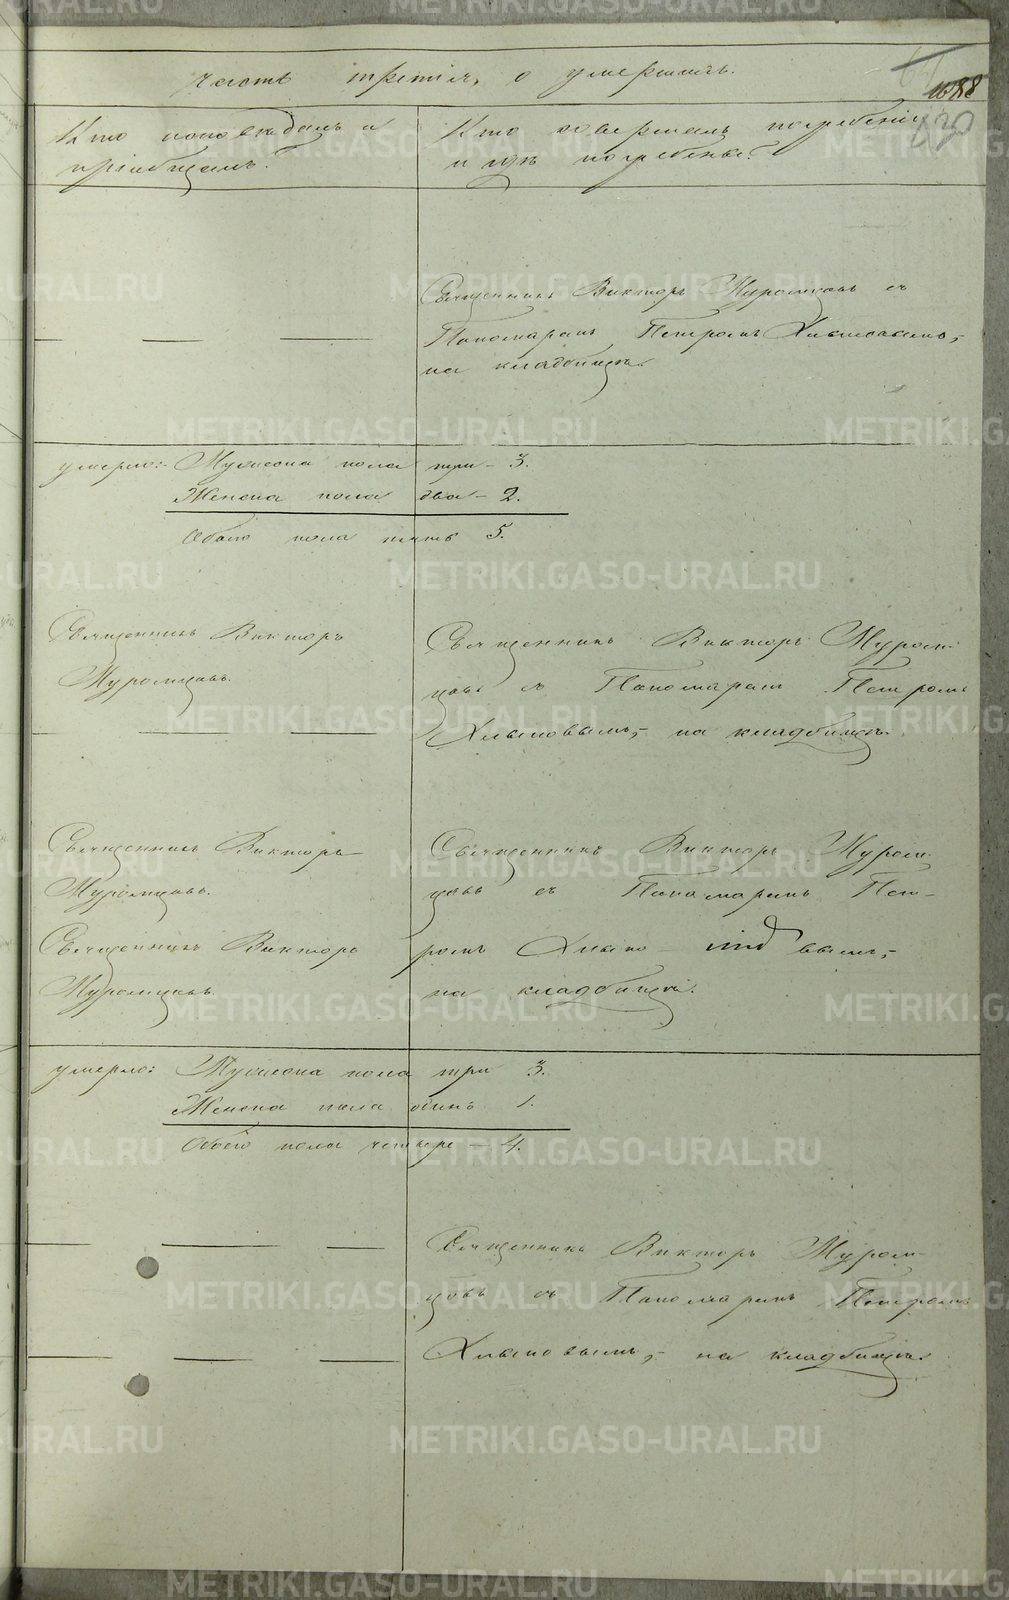 часть третія, о умершихъ.
1688
430
Кто исповѣдалъ и
пріобщалъ?
Кто совершалъ погребеніе
и гдѣ погребены?
Священникъ Викторъ Муромцовъ съ
Пономаремъ Петромъ Хлыновымъ,-
на кладбищѣ.
умерло: Мужеска пола три - 3.
Женска пола два - 2.
Обоего пола пять 5.
Священникъ Викторъ
Муромцовъ.
Священникъ Викторъ Муром-
цовъ съ Пономаремъ Петромъ
Хлыновымъ,- на кладбищѣ.
Священникъ Викторъ
Муромцовъ.
Священникъ Викторъ
Муромцовъ.
Священникъ Викторъ Муром-
цовъ съ Пономаремъ Пет-
ромъ Хлыно- вымъ,-
на кладбищѣ.
умерло: Мужеска пола три 3.
Женска пола одинъ 1.
Обоего пола четыре - 4.
Священникъ Викторъ Муром-
цовъ съ Пономаремъ Петромъ
Хлыновымъ,- на кладбищѣ.
METRIKI.GASO-URAL.RU